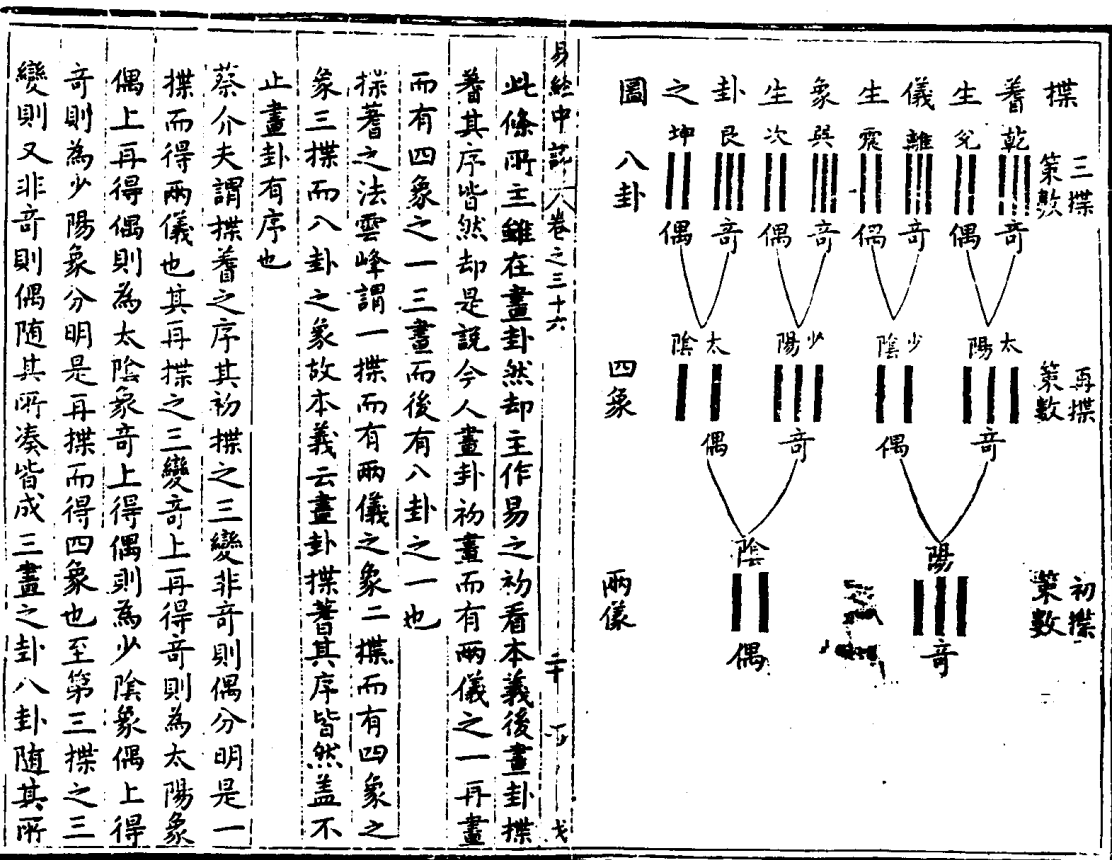 揲蓍生儀生象生卦之圖
三揲策數
乾兌離震巽坎艮坤
八卦
奇偶奇偶奇偶奇偶
再揲策數
太陽 少陰 少陽 太陰
四象
奇 偶 奇 偶
初揲策數
陽 陰
兩儀
奇 偶
易經中說 卷之三十六
此條所主雖在畫卦然却主作易之初看本義後畫卦揲
蓍其序皆然却是說今人畫卦初畫而有兩儀之一再畫
而有四象之一三畫而後有八卦之一也
揲蓍之法雲峰謂一揲而有兩儀之象二揲而有四象之
象三揲而八卦之象故本義云畫卦揲蓍其序皆然盖不
止畫卦有序也
蔡介夫謂揲蓍之序其初揲之三變非奇則偶分明是一
揲而得兩儀也其再揲之三變奇上再得奇則為太陽象
偶上再得偶則為太陰象奇上得偶則為少陰象偶上得
奇則為少陽象分明是再揲而得四象也至第三揲之三
變則又非奇則偶随其所凑皆成三畫之卦八卦随其所